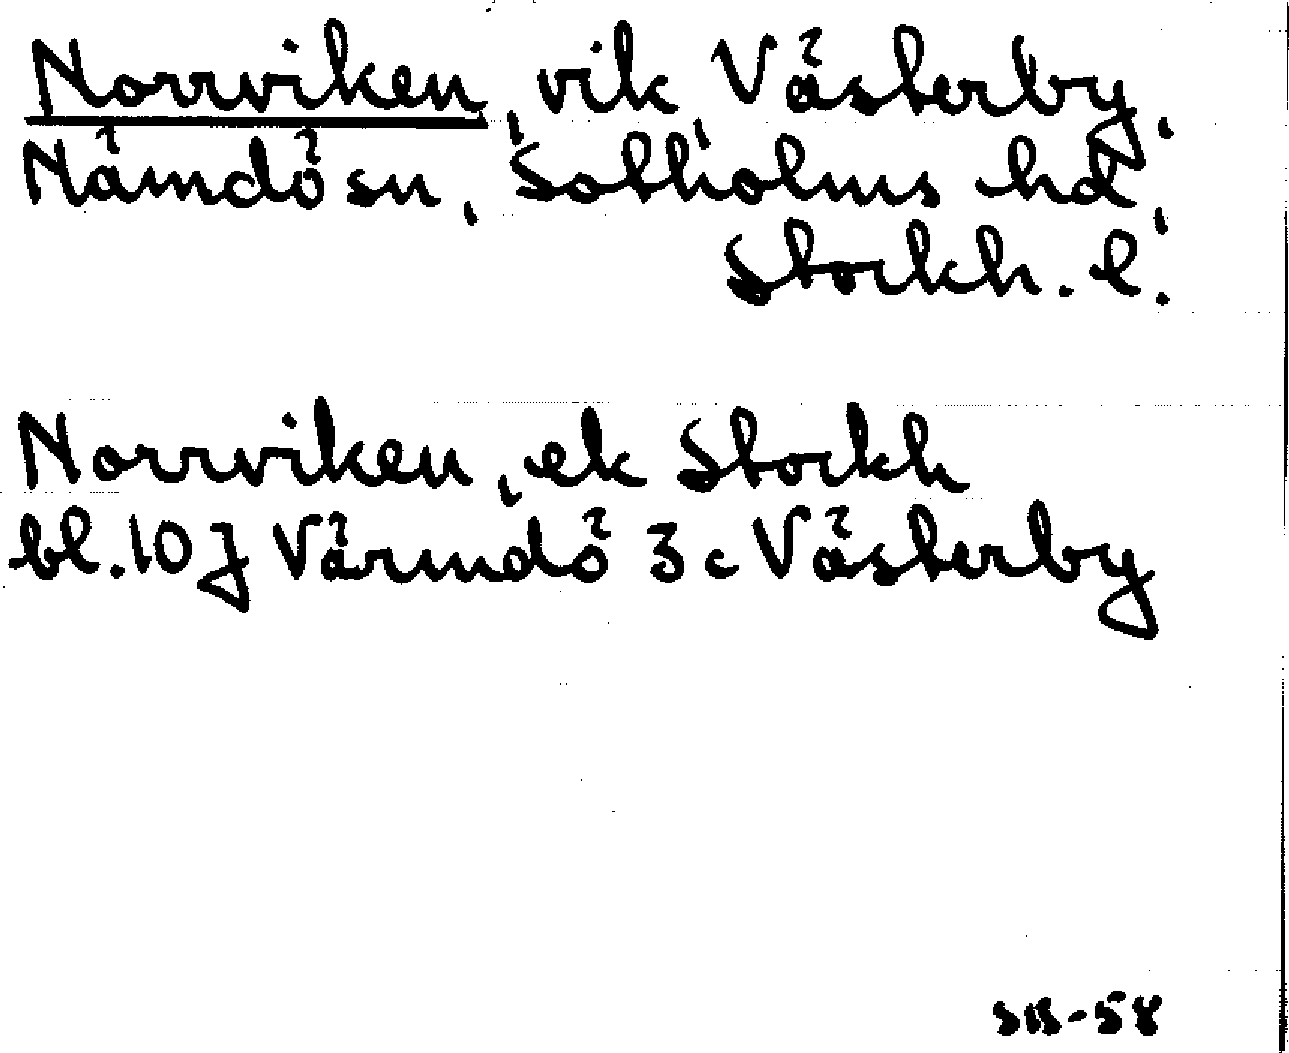 Norrviken, vik Västerby,
Nämdö sn, Sotholms hd,
Stockh. l.
Norrviken, ek Stockh
bl. 10 J Värmdö 3c Västerby
SIB-58